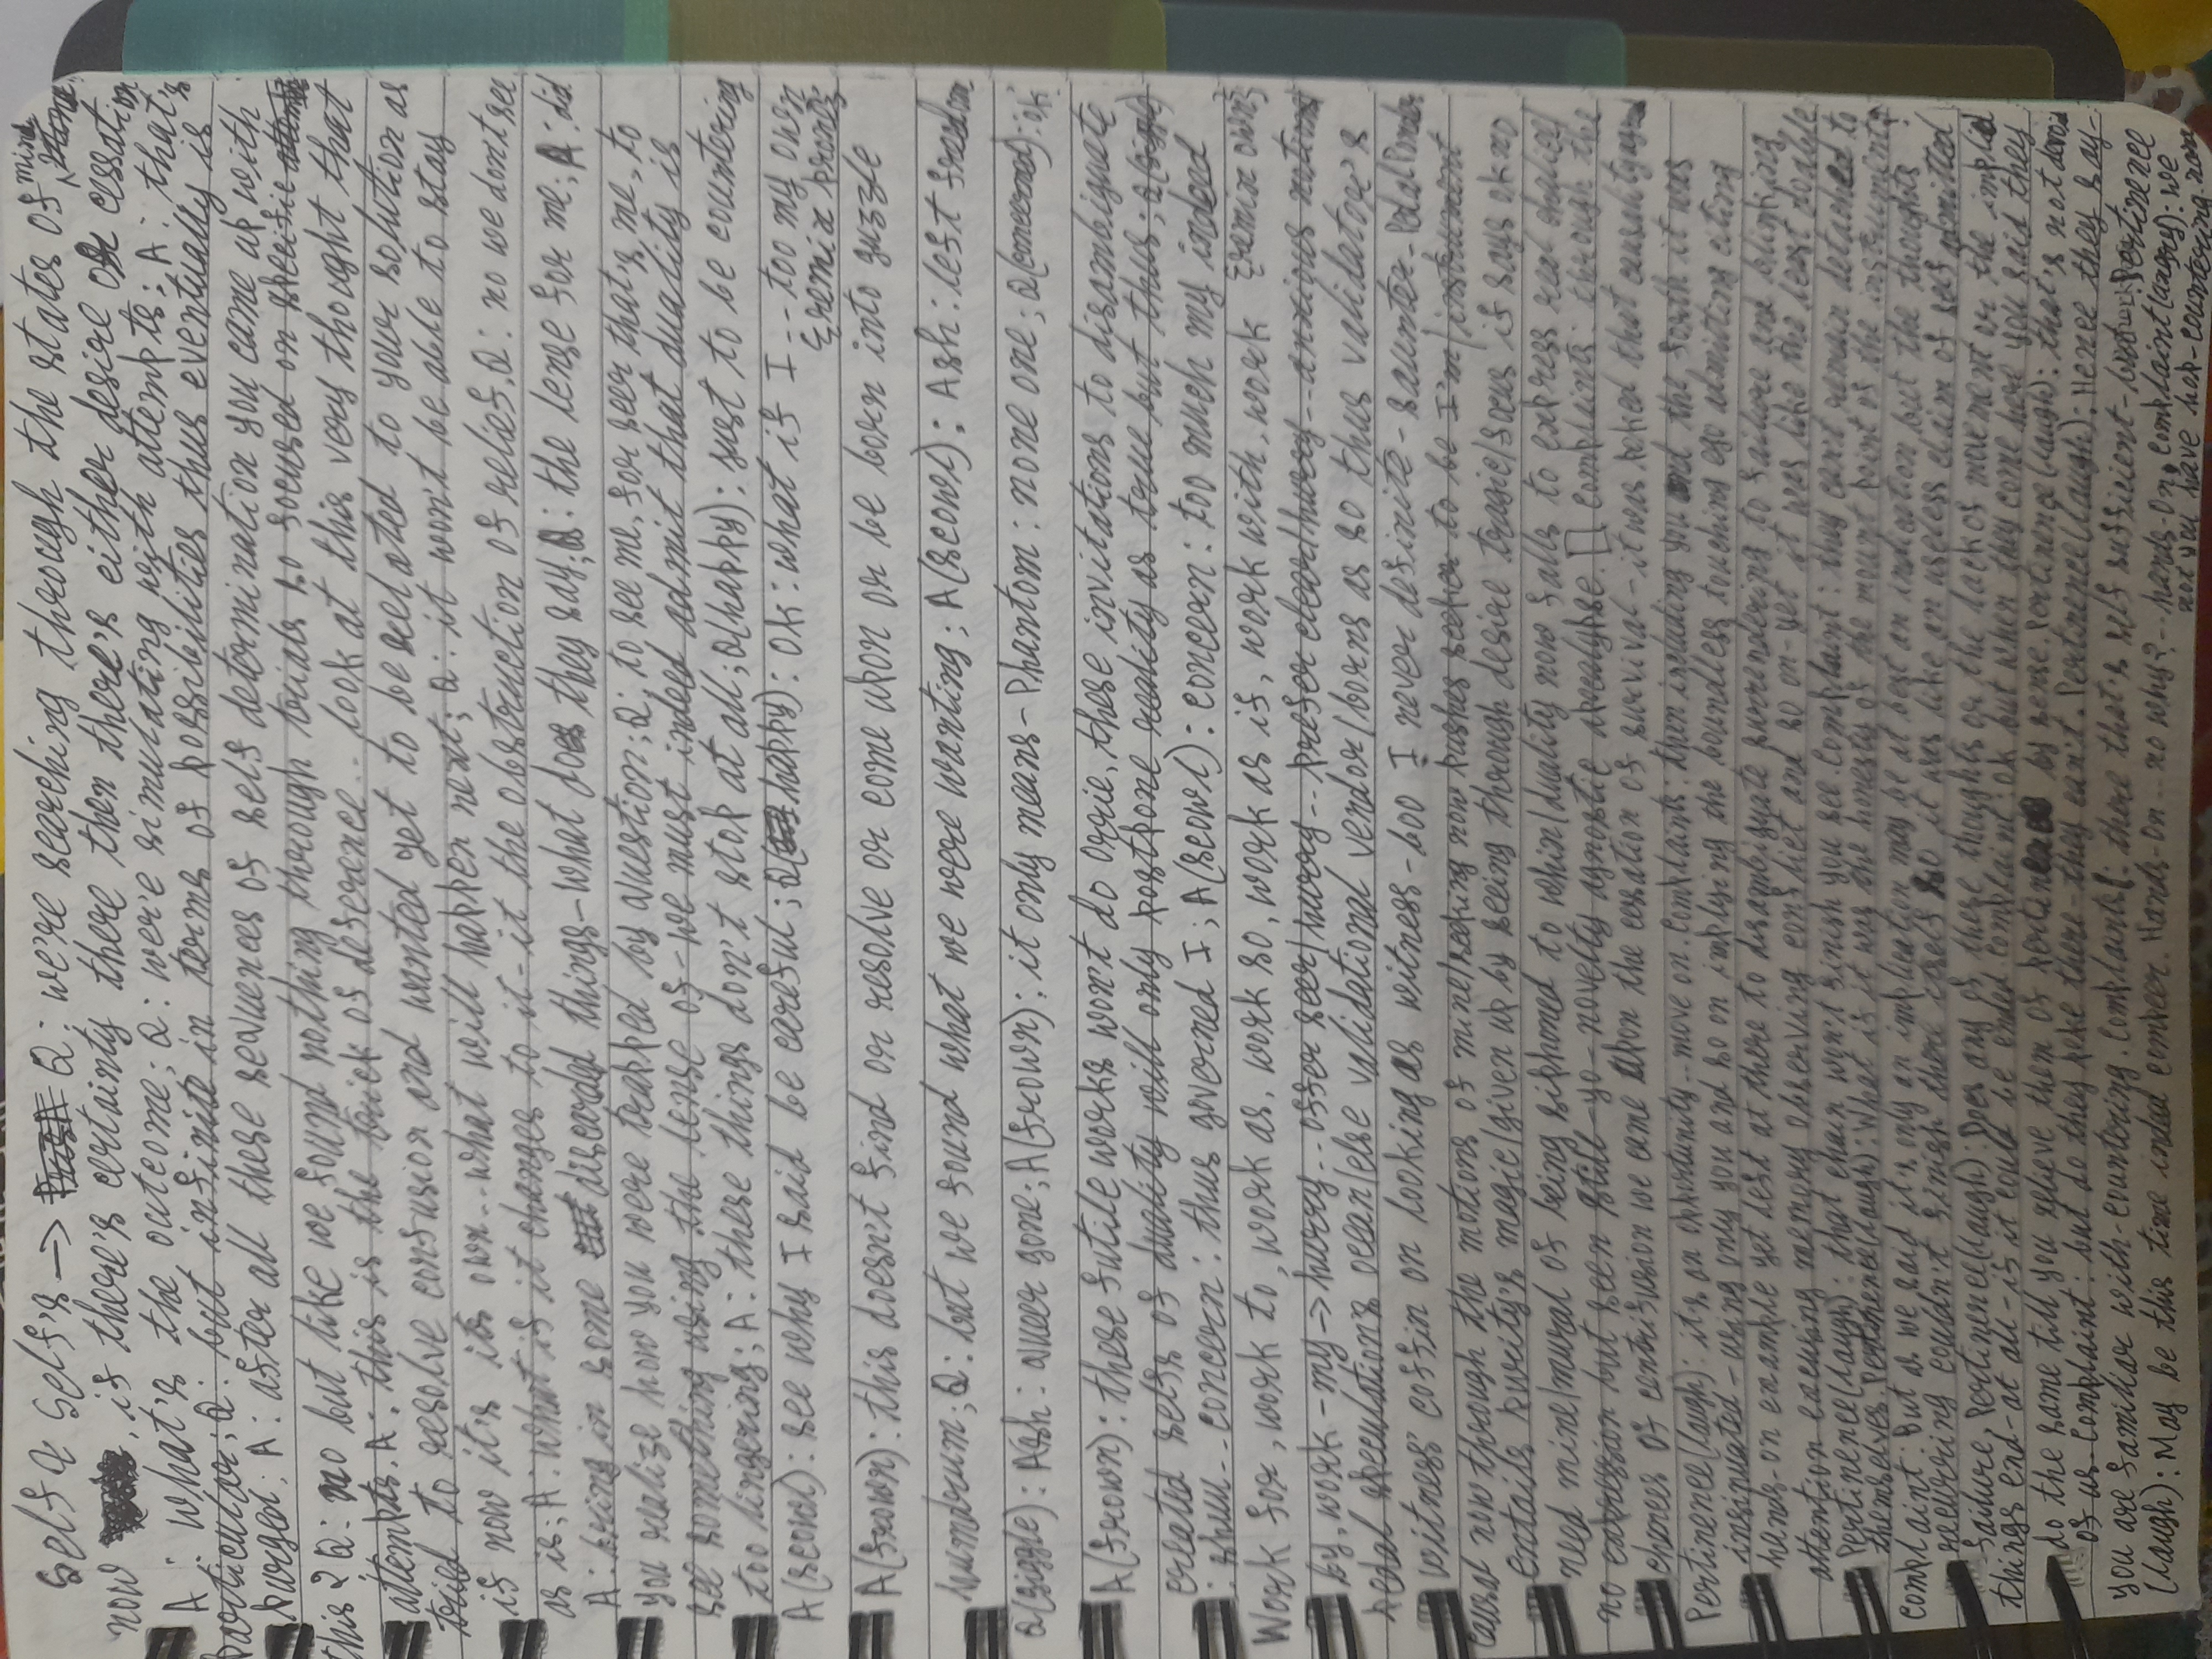 Self & Self's → Q: we're searching through the states of mind
now, if there's certainty there then there's either desire or cessation
A: what's the outcome; Q: we're simulating with attempts; A: that's
particular; Q: but infinite in terms of possibilities thus eventually is
purged; A: after all these sequences of self determination you came up with
this? Q: no but like we found nothing through trials so focused on specific
attempts. A: this is the trick of deference.. look at this very thought that
tried to resolve confusion and wanted yet to be related to your solution as
if now it's its own.. what will happen next; Q: it won't be able to stay
as is; A: what if it changes to it - it the obstruction of relief. Q: no we don't see
A: bring in some discarded things - what does they say; Q: the lense for me; A: did
you realize how you were trapped by question; Q: to see me, for seer that's me, to
see something using the lense of - we must indeed admit that duality is
too lingering; A: these things don't stop at all; Q(happy): just to be countering
A(scowl): see why I said be careful; Q(happy): ok: what if I... too my own
{remix prone}
A(frown): this doesn't find or resolve or come upon or be born into guzzle
humdrum; Q: but we found what we were wanting; A(scowl): Ash: left freedom
Q(giggle): Ash: queer gone; A(frown): it only means - Phantom: none one; Q(concerned): ok
A(frown): these futile works won't do Orrie, these invitations to disambiguate
created selfs of duality will only postpone reality as true but thus; Q
: .. concern: thus governed I; A(scowl): concern: too much my indeed
Work for, work to, work as, work so, work as if, work with, work {remix own}
by, work - my → hurry.. offer seer/hurry.. prefer clear/hurry.. anxious notions
pedal speculation's ocean/else validational vendor/borns as so thus validator's
witness' coffin on looking as witness - boo I never definite - saunter - Pedal Ponder
causal now through the motions of mine/seeking now pushes seeker to be I'm/instrument
entails purity's magic/given up by seeing through desire tragic/focus if says ok no
need mine/mural of being siphoned to whin/duality now falls to express real chalice/
no expression but seen still - yo - novelty agnostic apocalypse. [] Complaints: through the
chences of centrifusion we came upon the cessation of survival - it was poked that causality
Pertinence(laugh): it's an opportunity.. move on. Complaints: then including you and the forth it was
insinuated - using only you and so on implying the boundless touching ego admitting citing
hands-on example yet lest at there to disambiguate surrendering to failure and blinking
attention excusing memory observing conflict and so on - yet it was like the least doable
Pertinence(laugh): that chain won't finish you see. Complaint: they can't remain detached to
themselves. Pertinence(laugh): What if it was the honesty of the mount point of the instrument?
Complaint: But as we said it's only an implication may be at best an indication but the thoughts
recurring couldn't finish there itself so it was like an useless claim of self admitted
failure. Pertinence(laugh): Does any of these thoughts or the lack of movement or the implied
things end - at all - is it could be ended. Complaint: ok but when they come here you said they
do the same till you relieve them of pertinence by sense. Pertinence(laugh): that's not devoid
of us. Complaint: but do they poke there - they can't. Pertinence(laugh): Hence they say -
you are familiar with - countering. Complaints: there that's self sufficient - but Pertinence
(laugh): May be this time indeed compeer. Hands-On.. no why?.. hands-On. Complaint(angry): we
not you have hop-countering